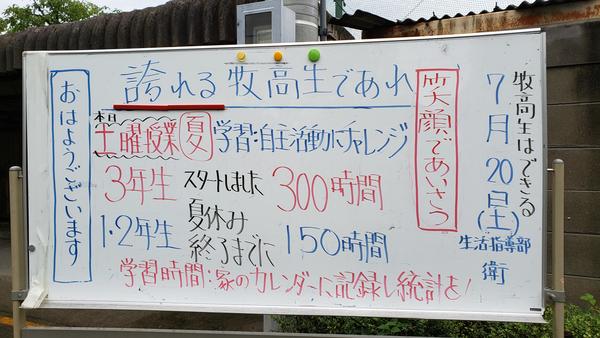 牧高生はできる
7月20日(土)
生活指導部
衛
誇れる牧高生であれ
笑顔であいさつ
おはようございます
本日
土曜授業 夏 学習・自主活動にチャレンジ
3年生 スタートしました 300時間
1・2年生 夏休み終了までに 150時間
学習時間:家のカレンダーに記録し統計を!